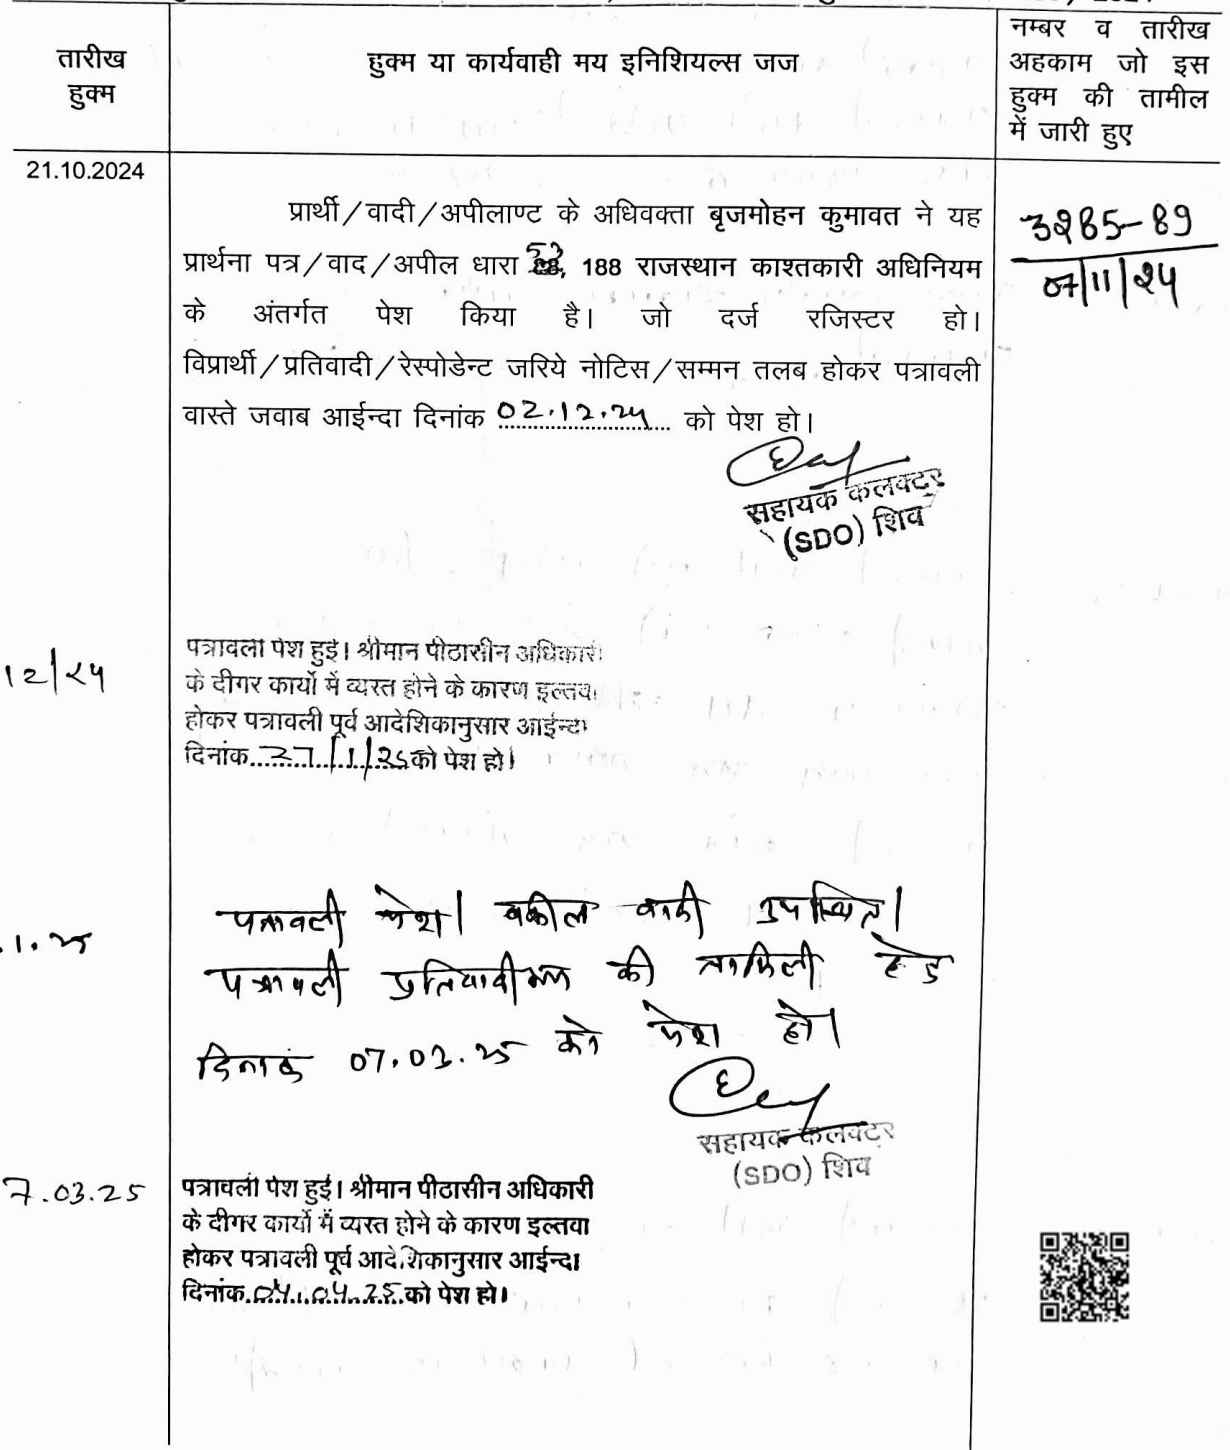 तारीख
हुक्म
हुक्म या कार्यवाही मय इनिशियल्स जज
नम्बर व तारीख
अहकाम जो इस
हुक्म की तामील
में जारी हुए
21.10.2024
प्रार्थी/वादी/अपीलाण्ट के अधिवक्ता बृजमोहन कुमावत ने यह
प्रार्थना पत्र/वाद/अपील धारा 53, 188 राजस्थान काश्तकारी अधिनियम
के अंतर्गत पेश किया है। जो दर्ज रजिस्टर हो।
विप्रार्थी/प्रतिवादी/रेस्पोडेन्ट जरिये नोटिस/सम्मन तलब होकर पत्रावली
वास्ते जवाब आईन्दा दिनांक 02.12.24 को पेश हो।
3285-89
07/11/24
सहायक कलक्टर
(SDO) शिव
12/24
पत्रावली पेश हुई। श्रीमान पीठासीन अधिकारी
के दीगर कार्यो में व्यस्त होने के कारण इल्तवा
होकर पत्रावली पूर्व आदेशिकानुसार आईन्दा
दिनांक 27/1/25 को पेश हो।
.1.25
पत्रावली पेश। वकील वादी उपस्थित।
पत्रावली प्रतिवादीगण की तामिली हेतु
दिनांक 07.03.25 को पेश हो।
सहायक कलक्टर
(SDO) शिव
7.03.25
पत्रावली पेश हुई। श्रीमान पीठासीन अधिकारी
के दीगर कार्यो में व्यस्त होने के कारण इल्तवा
होकर पत्रावली पूर्व आदेशिकानुसार आईन्दा
दिनांक 04.04.25 को पेश हो।